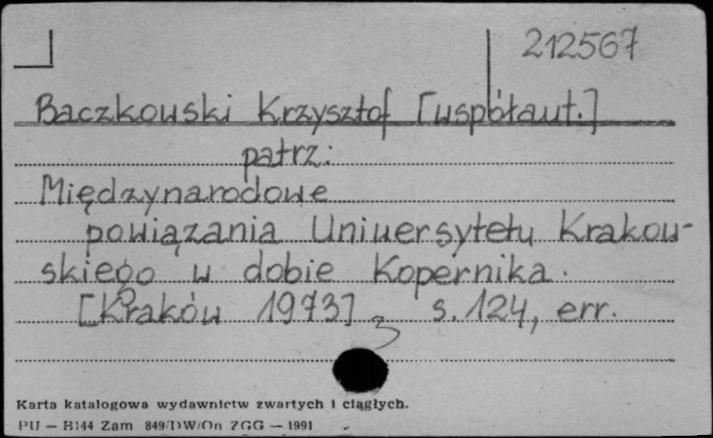 212567
Baczkowski Krzysztof [współaut.]
patrz:
Międzynarodowe
powiązania Uniwersytetu Krakow-
skiego w dobie Kopernika.
[Kraków 1973], s. 124, err.
Karta katalogowa wydawnictw zwartych i ciągłych.
PU — B144 Zam 849/DW/On ZGG — 1991